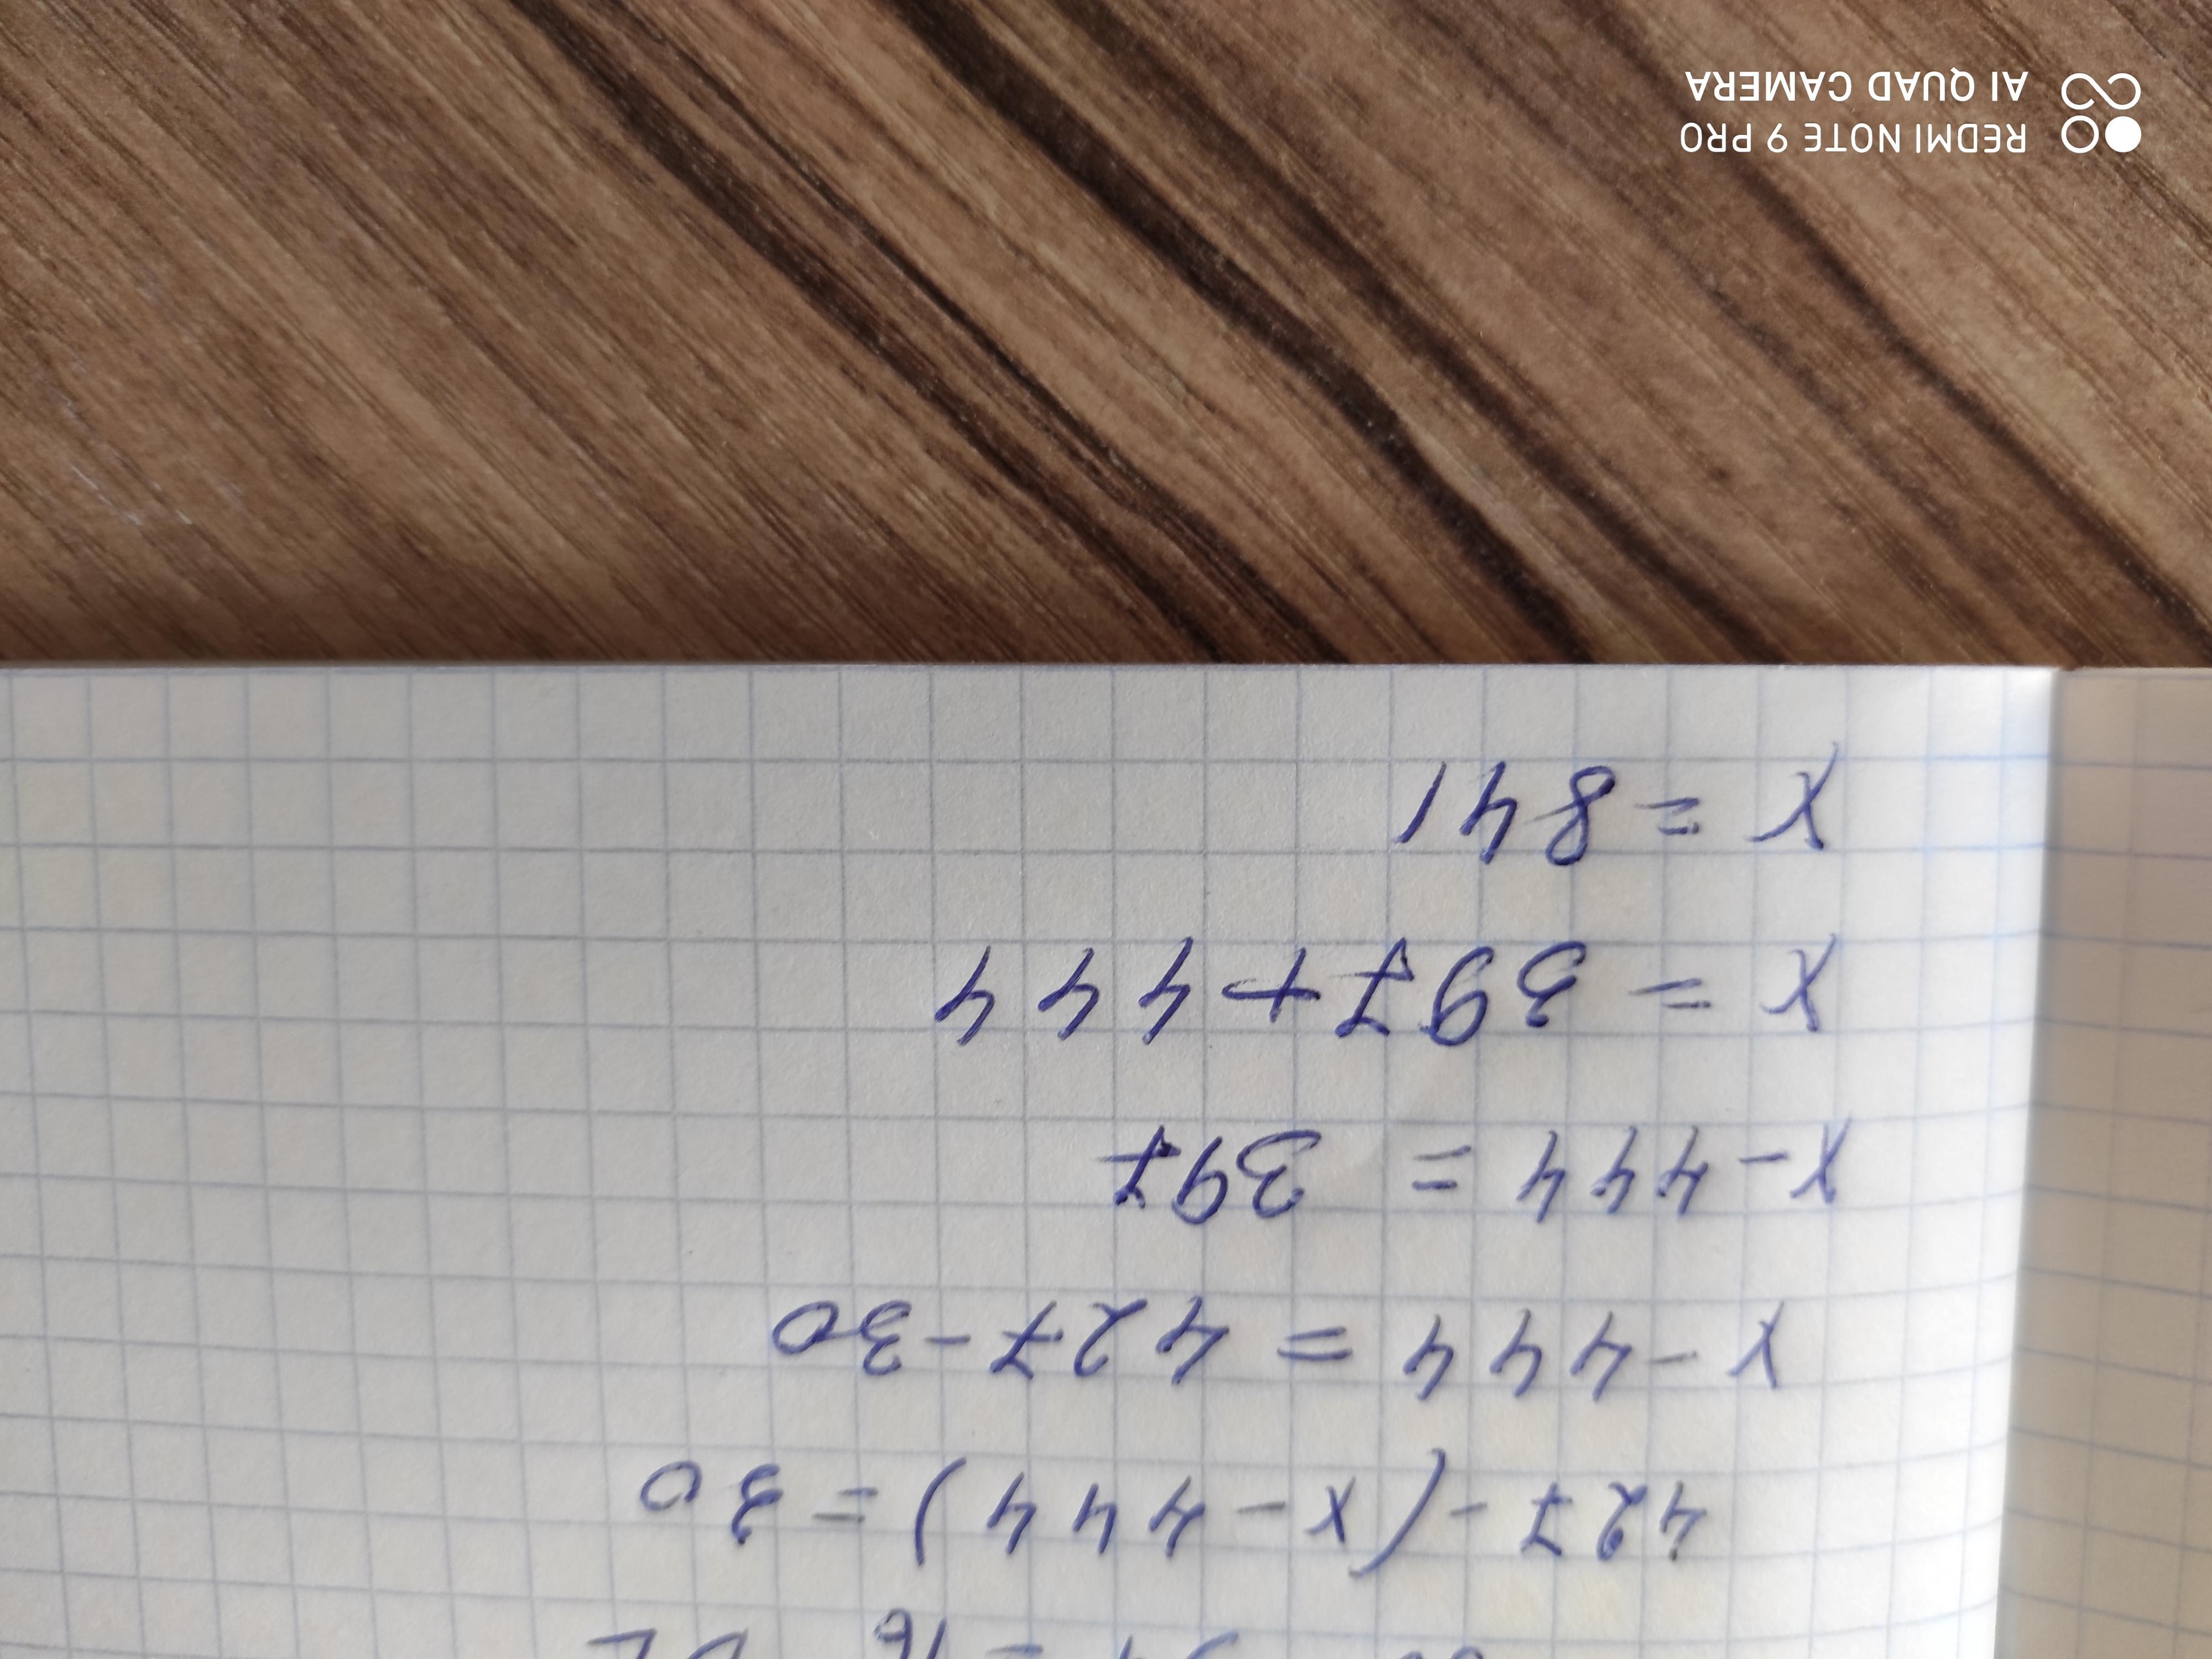 427-(x-444)=30
x-444=427-30
x-444= 397
x = 397+444
x = 841
REDMI NOTE 9 PRO
AI QUAD CAMERA